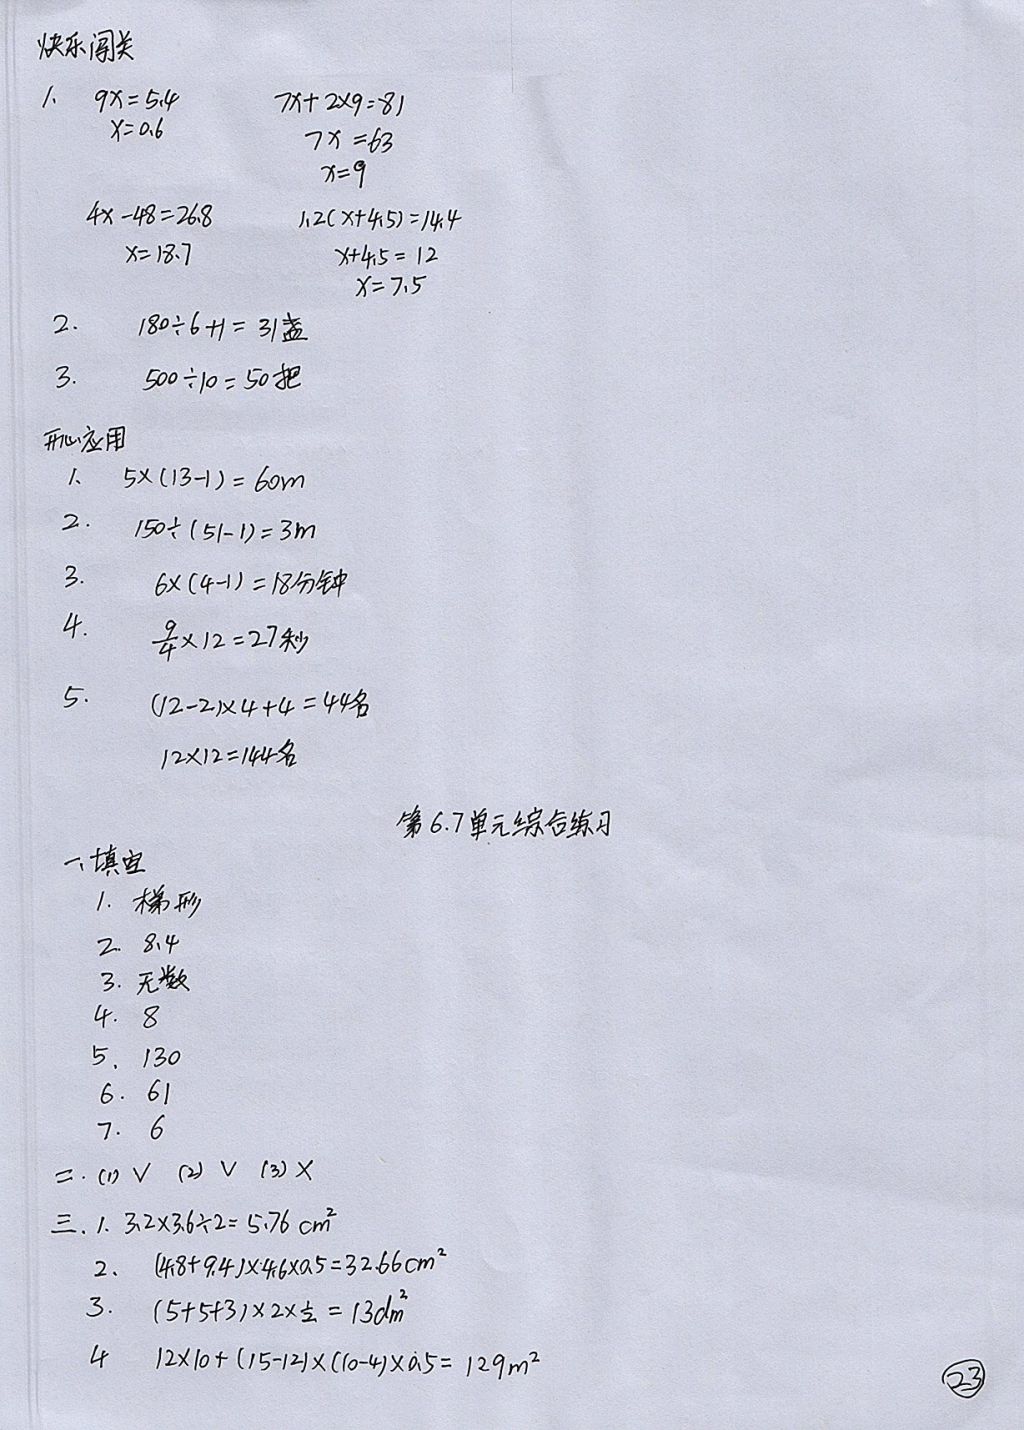 快乐闯关
1. 9x=5.4 7x+2×9=81
x=0.6 7x=63
x=9
4x-48=26.8 1.2(x+4.5)=14.4
x=18.7 x+4.5=12
x=7.5
2. 180÷6+1=31盏
3. 500÷10=50把
开心应用
1. 5×(13-1)=60m
2. 150÷(51-1)=3m
3. 6×(4-1)=18分钟
4. 9/4×12=27秒
5. (12-2)×4+4=44名
12×12=144名
第6.7单元综合练习
一、填空
1. 梯形
2. 8.4
3. 无数
4. 8
5. 130
6. 61
7. 6
二. (1) √ (2) √ (3) ×
三. 1. 3.2×3.6÷2=5.76 cm²
2. (4.8+9.4)×4.6×0.5=32.66cm²
3. (5+5+3)×2×½=13dm²
4 12×10+(15-12)×(10-4)×0.5=129m²
23